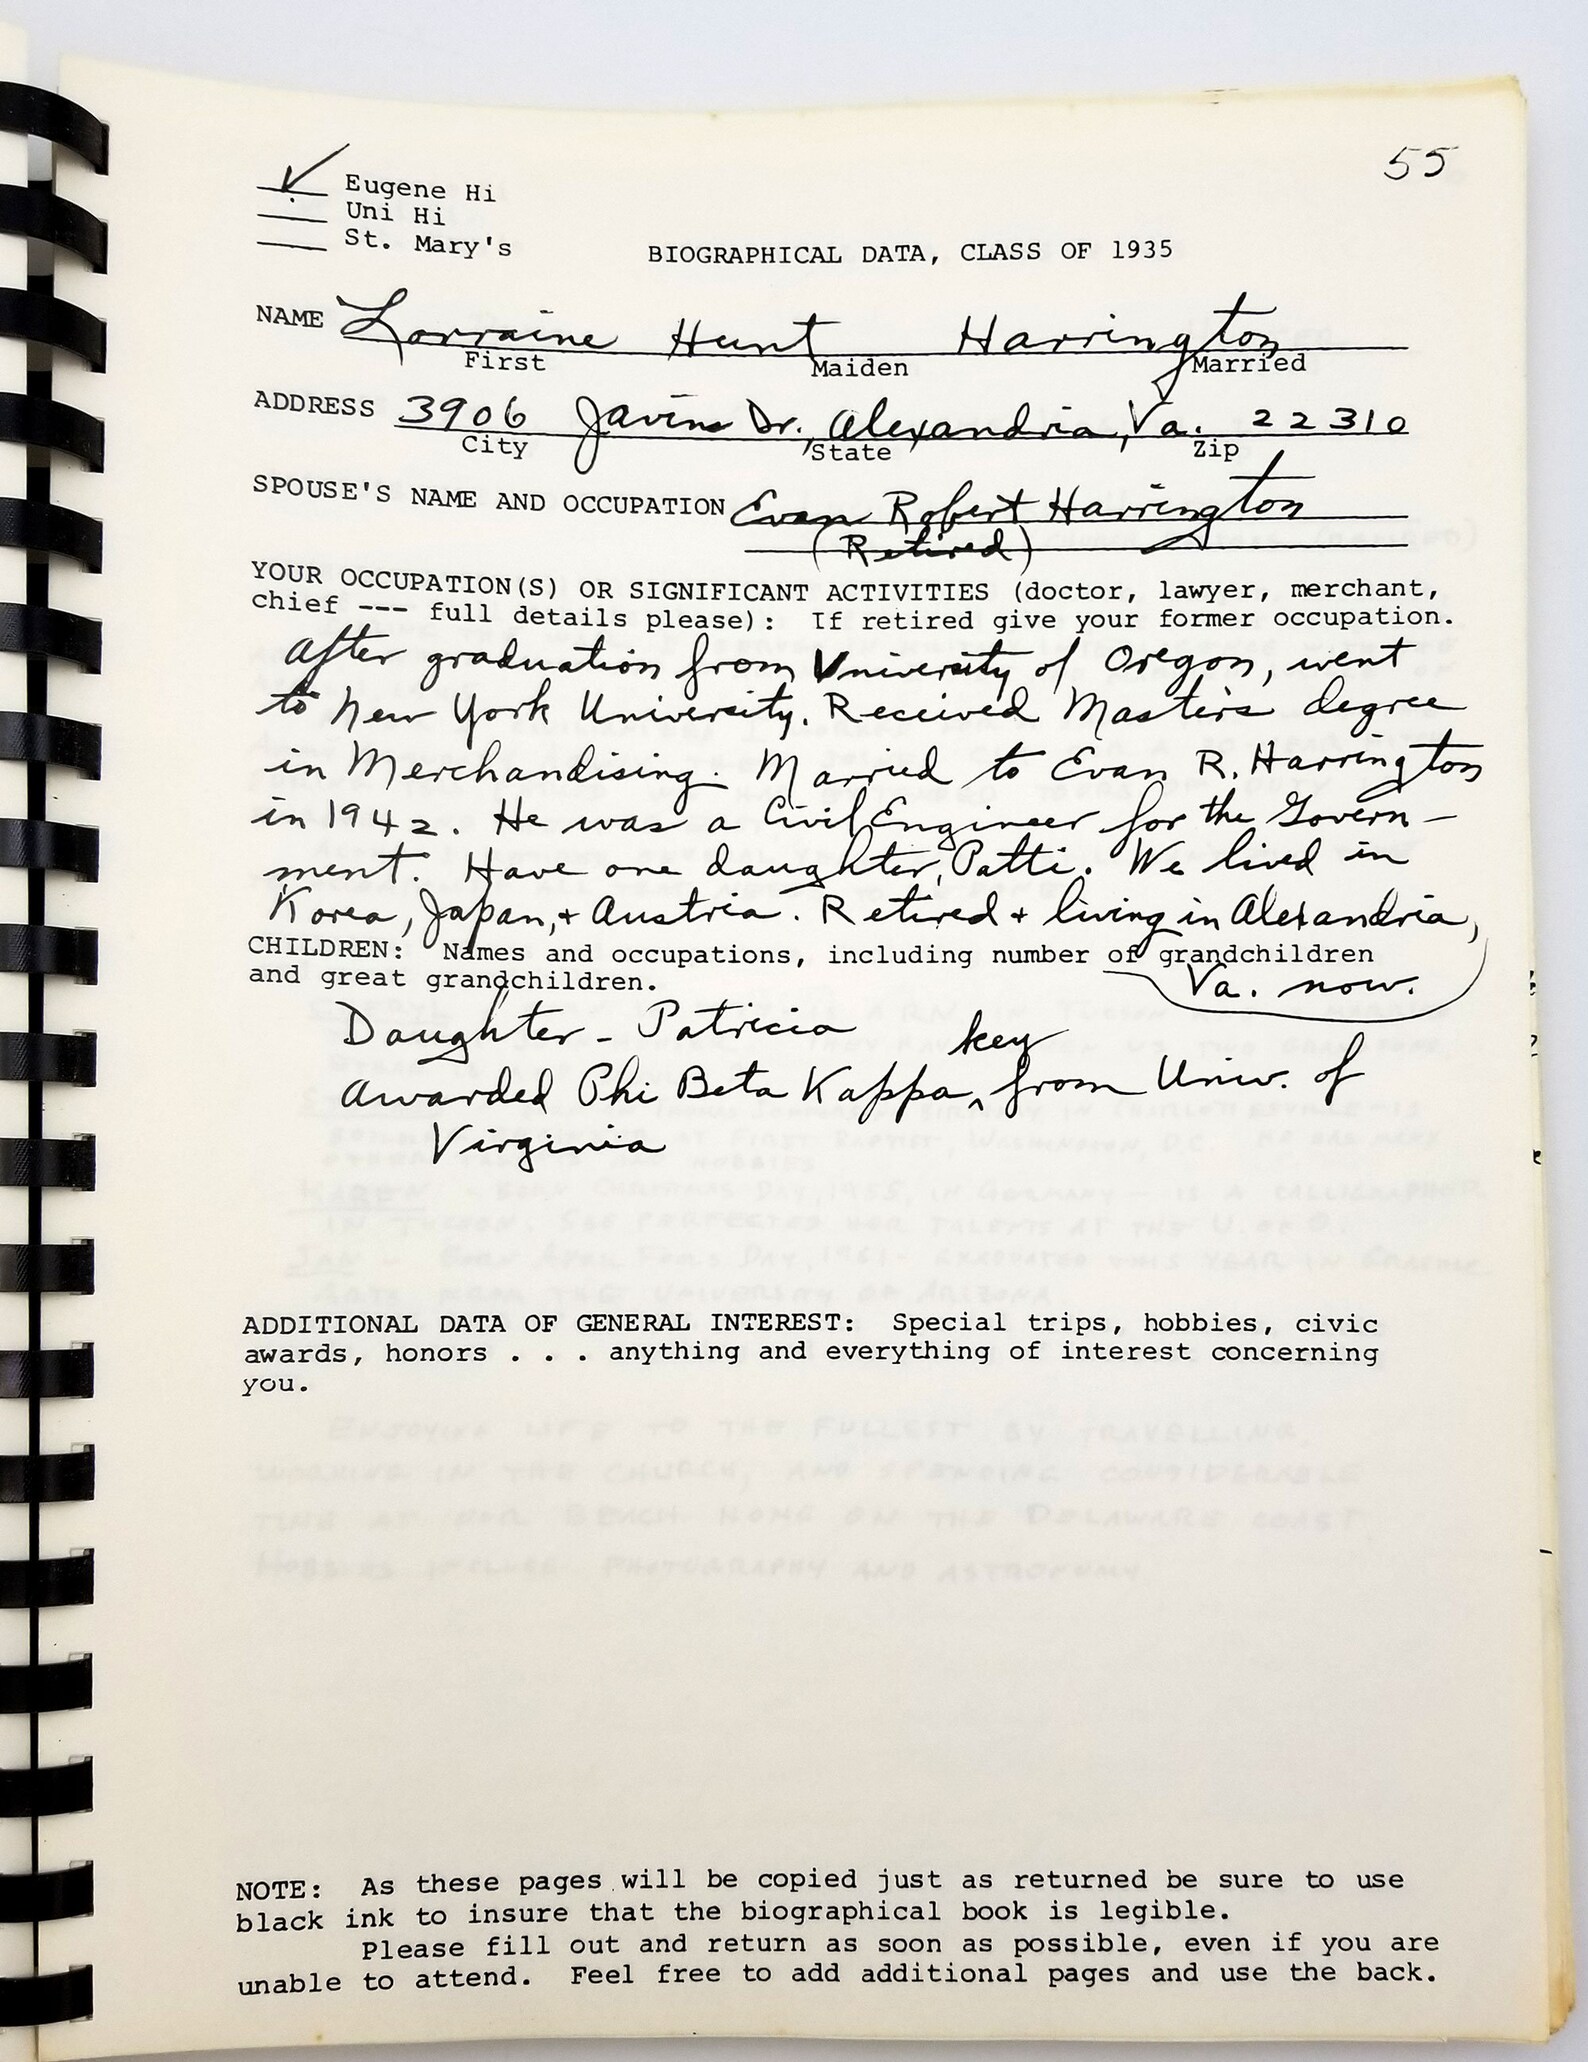 55
✓ Eugene Hi
___ Uni Hi
___ St. Mary's
BIOGRAPHICAL DATA, CLASS OF 1935
NAME Lorraine Hunt Harrington
First Maiden Married
ADDRESS 3906 Javins Dr., Alexandria, Va. 22310
City State Zip
SPOUSE'S NAME AND OCCUPATION Evan Robert Harrington
(Retired)
YOUR OCCUPATION(S) OR SIGNIFICANT ACTIVITIES (doctor, lawyer, merchant,
chief --- full details please): If retired give your former occupation.
After graduation from University of Oregon, went
to New York University. Received Master's degree
in Merchandising. Married to Evan R. Harrington
in 1942. He was a Civil Engineer for the Govern-
ment. Have one daughter, Patti. We lived in
Korea, Japan, + Austria. Retired + living in Alexandria,
Va. now.
CHILDREN: Names and occupations, including number of grandchildren
and great grandchildren.
Daughter - Patricia
key
Awarded Phi Beta Kappa ^ from Univ. of
Virginia
ADDITIONAL DATA OF GENERAL INTEREST: Special trips, hobbies, civic
awards, honors . . . anything and everything of interest concerning
you.
ENJOYING LIFE TO THE FULLEST BY TRAVELLING,
WORKING IN THE CHURCH, AND SPENDING CONSIDERABLE
TIME AT OUR BEACH HOME ON THE DELAWARE COAST.
HOBBIES INCLUDE PHOTOGRAPHY AND ASTRONOMY
NOTE: As these pages will be copied just as returned be sure to use
black ink to insure that the biographical book is legible.
Please fill out and return as soon as possible, even if you are
unable to attend. Feel free to add additional pages and use the back.